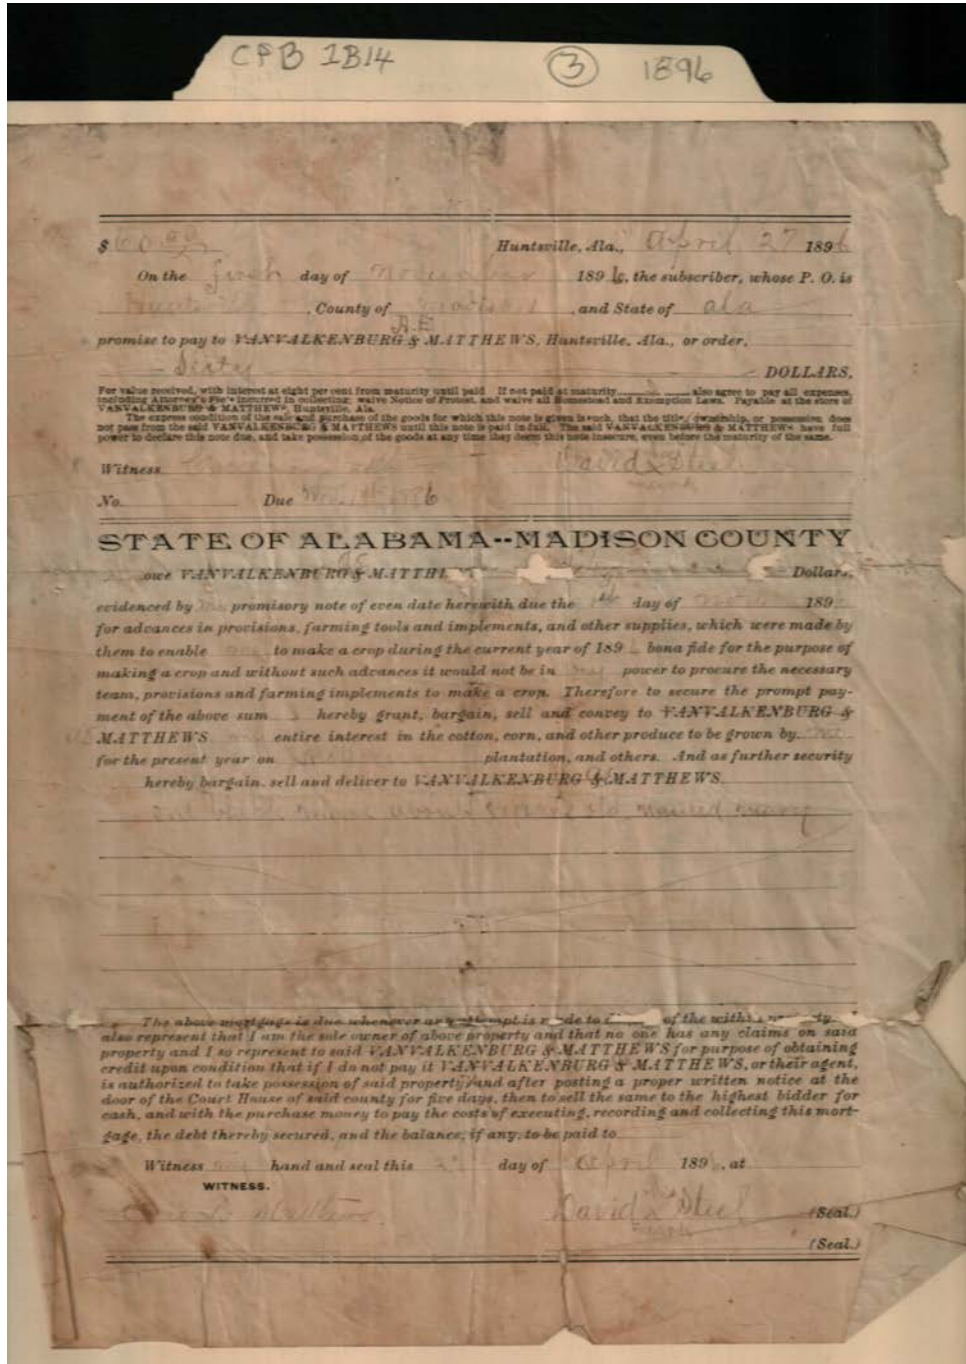 CPB 1B14 3 1896
$ 60.00 Huntsville, Ala., April 27 1896
On the first day of November 1896, the subscriber, whose P. O. is
, County of Madison, and State of Ala
A.E
promise to pay to VANVALKENBURG & MATTHEWS, Huntsville, Ala., or order,
Sixty DOLLARS,
For value received, with interest at eight per cent from maturity until paid. If not paid at maturity also agree to pay all expenses,
including Attorney's Fee's incurred in collecting; waive Notice of Protest, and waive all Homestead and Exemption Laws. Payable at the store of
VANVALKENBURG & MATTHEWS, Huntsville, Ala.
The express condition of the sale and purchase of the goods for which this note is given is such, that the title, ownership, or possession does
not pass from the said VANVALKENBURG & MATTHEWS until this note is paid in full. The said VANVALKENBURG & MATTHEWS have full
power to declare this note due, and take possession of the goods at any time they deem this note insecure, even before the maturity of the same.
Witness David x Steel
mark
No. Due Nov. 1st 1896
STATE OF ALABAMA--MADISON COUNTY
owe VANVALKENBURG & MATTHEWS Dollars,
evidenced by promisory note of even date herewith due the 1st day of 189
for advances in provisions, farming tools and implements, and other supplies, which were made by
them to enable to make a crop during the current year of 189 bona fide for the purpose of
making a crop and without such advances it would not be in my power to procure the necessary
team, provisions and farming implements to make a crop. Therefore to secure the prompt pay-
ment of the above sum I hereby grant, bargain, sell and convey to VANVALKENBURG &
MATTHEWS entire interest in the cotton, corn, and other produce to be grown by me
for the present year on plantation, and others. And as further security
hereby bargain, sell and deliver to VANVALKENBURG & MATTHEWS.
one black mare about years old named
The above mortgage is due whenever any attempt is made to of the within
also represent that I am the sole owner of above property and that no one has any claims on said
property and I so represent to said VANVALKENBURG & MATTHEWS for purpose of obtaining
credit upon condition that if I do not pay it VANVALKENBURG & MATTHEWS, or their agent,
is authorized to take possession of said property and after posting a proper written notice at the
door of the Court House of said county for five days, then to sell the same to the highest bidder for
cash, and with the purchase money to pay the costs of executing, recording and collecting this mort-
gage, the debt thereby secured, and the balance, if any, to be paid to
Witness my hand and seal this 27 day of April 189 , at
WITNESS.
Matthews. David x Steel (Seal.)
mark
(Seal.)